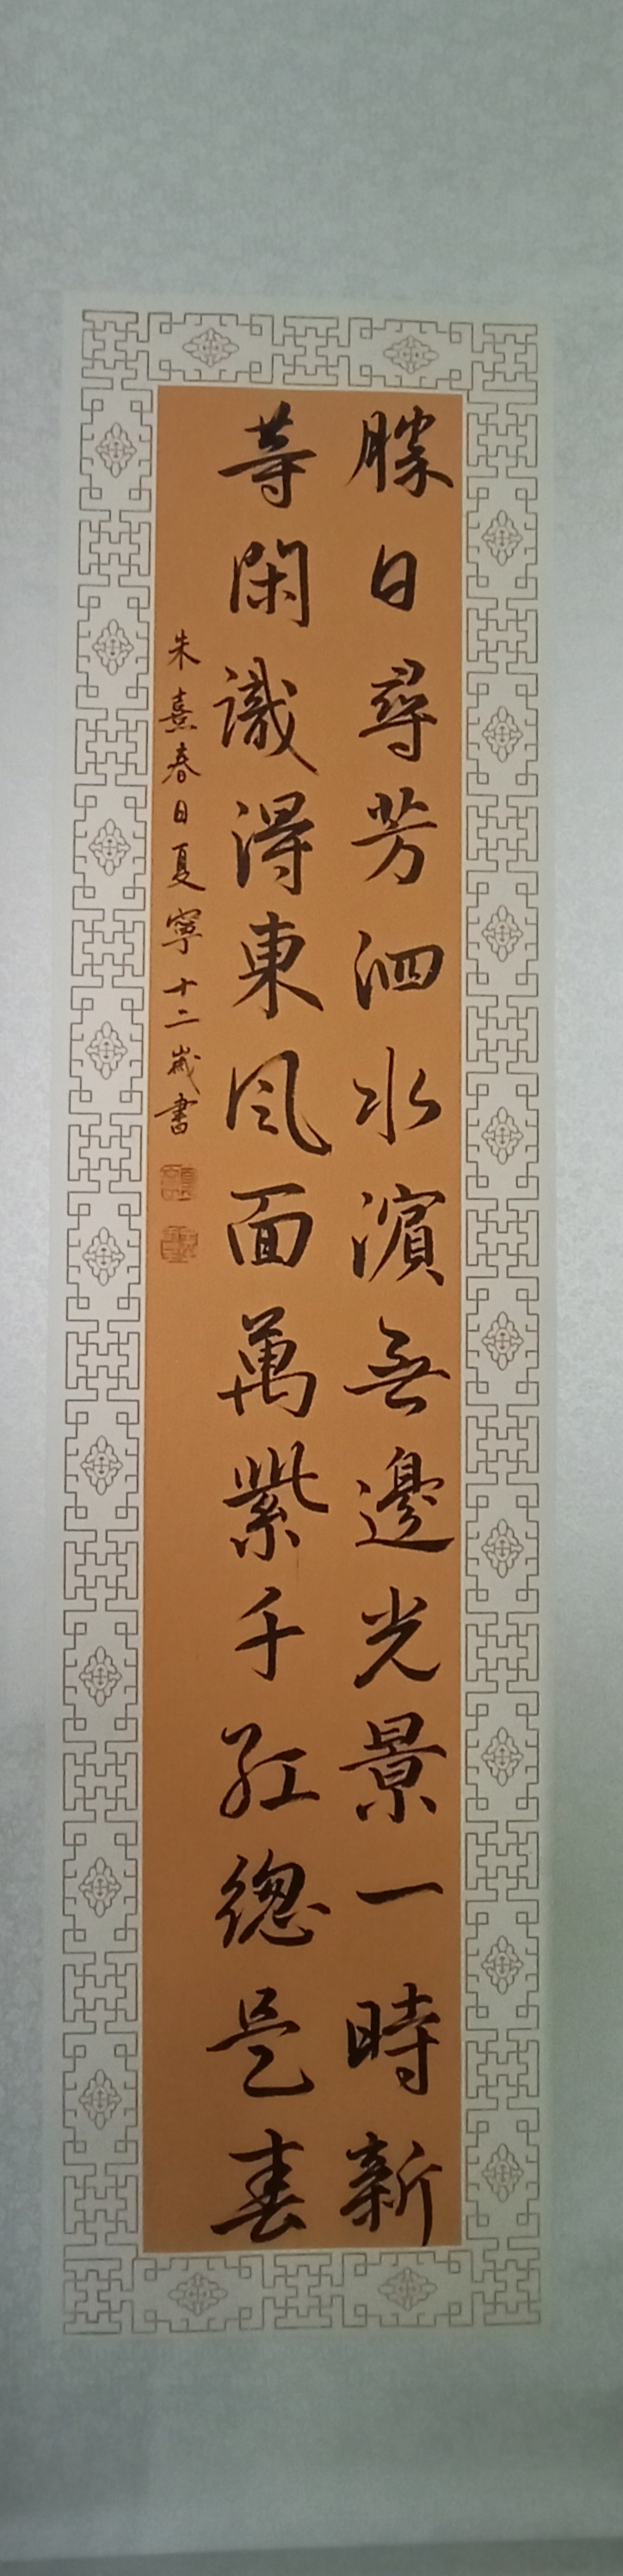 勝日尋芳泗水濱無邊光景一時新
等閑識得東風面萬紫千紅總是春
朱熹春日夏寧十二歲書